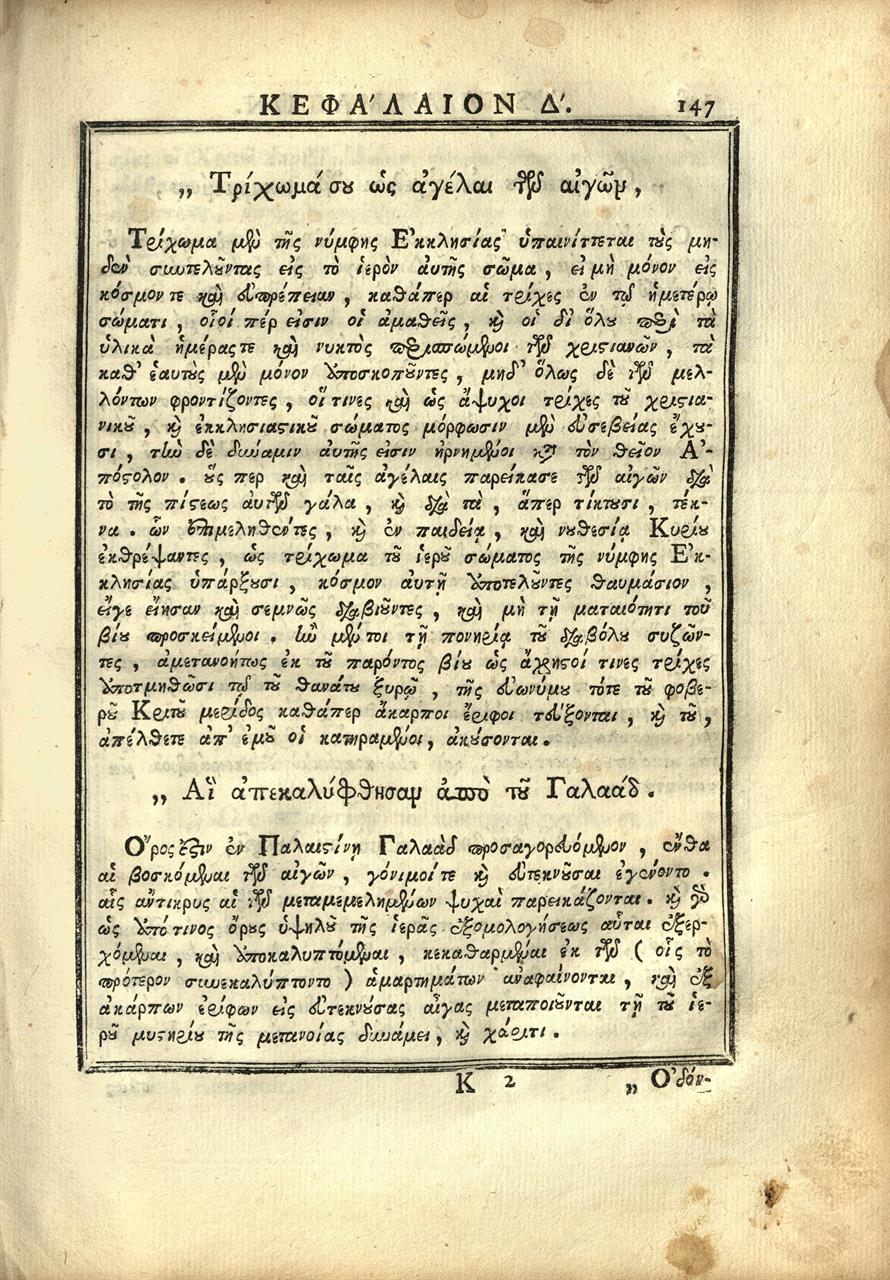 ΚΕΦΑ'ΛΑΙΟΝ Δ'. 147
„ Τρίχωμά σου ὡς ἀγέλαι τῶν αἰγῶν,
Τρίχωμα μὲν τῆς νύμφης Ἐκκλησίας ὑπαινίττεται τοὺς μη-
δὲν συντελοῦντας εἰς τὸ ἱερὸν αὐτῆς σῶμα, εἰ μὴ μόνον εἰς
κόσμον τε καὶ εὐπρέπειαν, καθάπερ αἱ τρίχες ἐν τῷ ἡμετέρῳ
σώματι, οἷοί πέρ εἰσιν οἱ ἀμαθεῖς, καὶ οἱ δι' ὅλου περὶ τὰ
ὑλικὰ ἡμέρας τε καὶ νυκτὸς περισπώμενοι τῶν χριστιανῶν, τὰ
καθ' ἑαυτοὺς μὲν μόνον ὑποσκοποῦντες, μηδ' ὅλως δὲ τῶν μελ-
λόντων φροντίζοντες, οἵ τινες καὶ ὡς ἄψυχοι τρίχες τοῦ χριστια-
νικοῦ, καὶ ἐκκλησιαστικοῦ σώματος μόρφωσιν μὲν εὐσεβείας ἔχου-
σι, τὴν δὲ δύναμιν αὐτῆς εἰσιν ἠρνημένοι κατὰ τὸν θεῖον Ἀ-
πόστολον. οὕς περ καὶ ταῖς ἀγέλαις παρείκασε τῶν αἰγῶν διὰ
τὸ τῆς πίστεως αὐτῶν γάλα, καὶ διὰ τὰ, ἅπερ τίκτουσι, τέκ-
να. ὧν ἐπιμεληθέντες, καὶ ἐν παιδείᾳ, καὶ νουθεσίᾳ Κυρίου
ἐκθρέψαντες, ὡς τρίχωμα τοῦ ἱεροῦ σώματος τῆς νύμφης Ἐκ-
κλησίας ὑπάρξουσι, κόσμον αὐτῇ ἀποτελοῦντες θαυμάσιον,
εἴγε εἴησαν καὶ σεμνῶς διαβιοῦντες, καὶ μὴ τῇ ματαιότητι τοῦ
βίου προσκείμενοι. ἢν μέντοι τῇ πονηρίᾳ τοῦ διαβόλου συζῶν-
τες, ἀμετανοήτως ἐκ τοῦ παρόντος βίου ὡς ἄχρηστοί τινες τρίχες
ἀποτμηθῶσι τῷ τοῦ θανάτου ξυρῷ, τῆς εὐωνύμου τότε τοῦ φοβε-
ροῦ Κριτοῦ μερίδος καθάπερ ἄκαρποι ἔριφοι τεύξονται, καὶ τοῦ,
ἀπέλθετε ἀπ' ἐμοῦ οἱ κατηραμένοι, ἀκούσονται.
„ Αἳ ἀπεκαλύφθησαν ἀπὸ τοῦ Γαλαάδ.
Ὄρος ἐστὶν ἐν Παλαιστίνῃ Γαλαὰδ προσαγορευόμενον, ἔνθα
αἱ βοσκόμεναι τῶν αἰγῶν, γόνιμοί τε καὶ εὐτεκνοῦσαι ἐγένοντο.
αἷς ἄντικρυς αἱ τῶν μεταμεμελημένων ψυχαὶ παρεικάζονται. καὶ γὰρ
ὡς ἀπό τινος ὄρους ὑψηλοῦ τῆς ἱερᾶς ἐξομολογήσεως αὗται ἐξερ-
χόμεναι, καὶ ἀποκαλυπτόμεναι, κεκαθαρμέναι ἐκ τῶν ( οἷς τὸ
πρότερον συνεκαλύπτοντο ) ἁμαρτημάτων ἀναφαίνονται, καὶ ἐξ
ἀκάρπων ἐρίφων εἰς εὐτεκνούσας αἶγας μεταποιοῦνται τῇ τοῦ ἱε-
ροῦ μυστηρίου τῆς μετανοίας δυνάμει, καὶ χάριτι.
K 2 „ Ὀδόν-